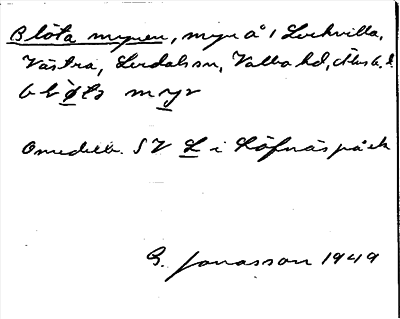 Blöta myren, myr å 1 Lockvilla,
Västra, Lerdalssn, Valbo hd, Älvsb. l.
bløta myr
Omedelb. SV L i Höfnäs påck
G. Jonasson 1949